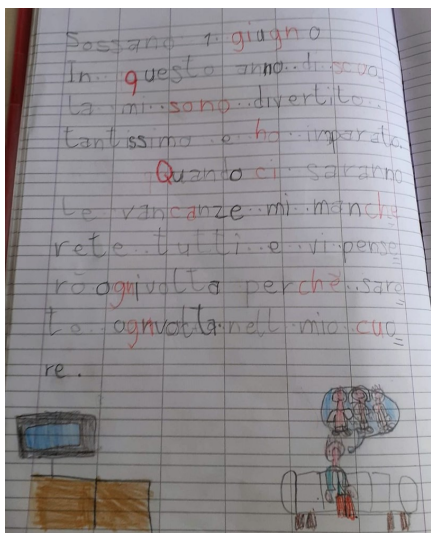 Sossano 1 giugno
In questo anno di scuo
la mi sono divertito
tantissimo e ho imparato.
Quando ci saranno
le vancanze mi manche
rete tutti e vi pense
rò ognivolta perchè sare
te ognvolta nell mio cuo
re.